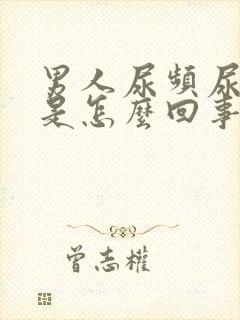 男人尿頻尿
是怎麼回事
曾志權